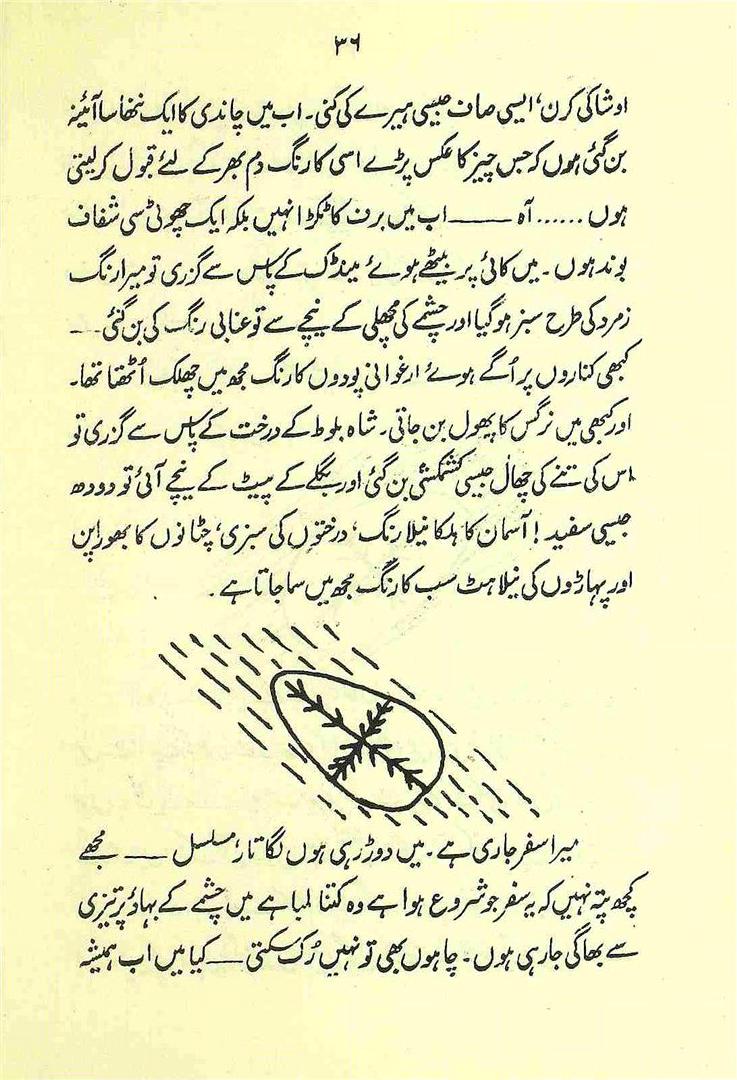 ۳۶
اوشا کی کرن، ایسی صاف جیسی ہیرے کی کنی۔ اب میں چاندی کا ایک ننھا سا آئینہ
بن گئی ہوں کہ جس چیز کا عکس پڑے اسی کا رنگ دم بھر کے لئے قبول کر لیتی
ہوں ...... آہ ــــــ اب میں برف کا ٹکڑا نہیں بلکہ ایک چھوٹی سی شفاف
بوند ہوں۔ میں کائی پر بیٹھے ہوئے مینڈک کے پاس سے گزری تو میرا رنگ
زمرد کی طرح سبز ہو گیا اور چشمے کی مچھلی کے نیچے سے تو عنابی رنگ کی بن گئی ـــ
کبھی کناروں پر اُگے ہوئے ارغوانی پودوں کا رنگ مجھ میں چھلک اُٹھتا تھا۔
اور کبھی میں نرگس کا پھول بن جاتی۔ شاہ بلوط کے درخت کے پاس سے گزری تو
اس کی تنے کی چھال جیسی کشمکشی بن گئی اور بگلے کے پیٹ کے نیچے آئی تو دودھ
جیسی سفید! آسمان کا ہلکا نیلا رنگ، درختوں کی سبزی، چٹانوں کا بھورا پن
اور پہاڑوں کی نیلاہٹ سب کا رنگ مجھ میں سما جاتا ہے۔
میرا سفر جاری ہے۔ میں دوڑ رہی ہوں لگاتار، مسلسل ــــ مجھے
کچھ پتہ نہیں کہ یہ سفر جو شروع ہوا ہے وہ کتنا لمبا ہے میں چشمے کے بہاؤ پر تیزی
سے بھاگی جا رہی ہوں۔ چاہوں بھی تو نہیں رُک سکتی ــــ کیا میں اب ہمیشہ